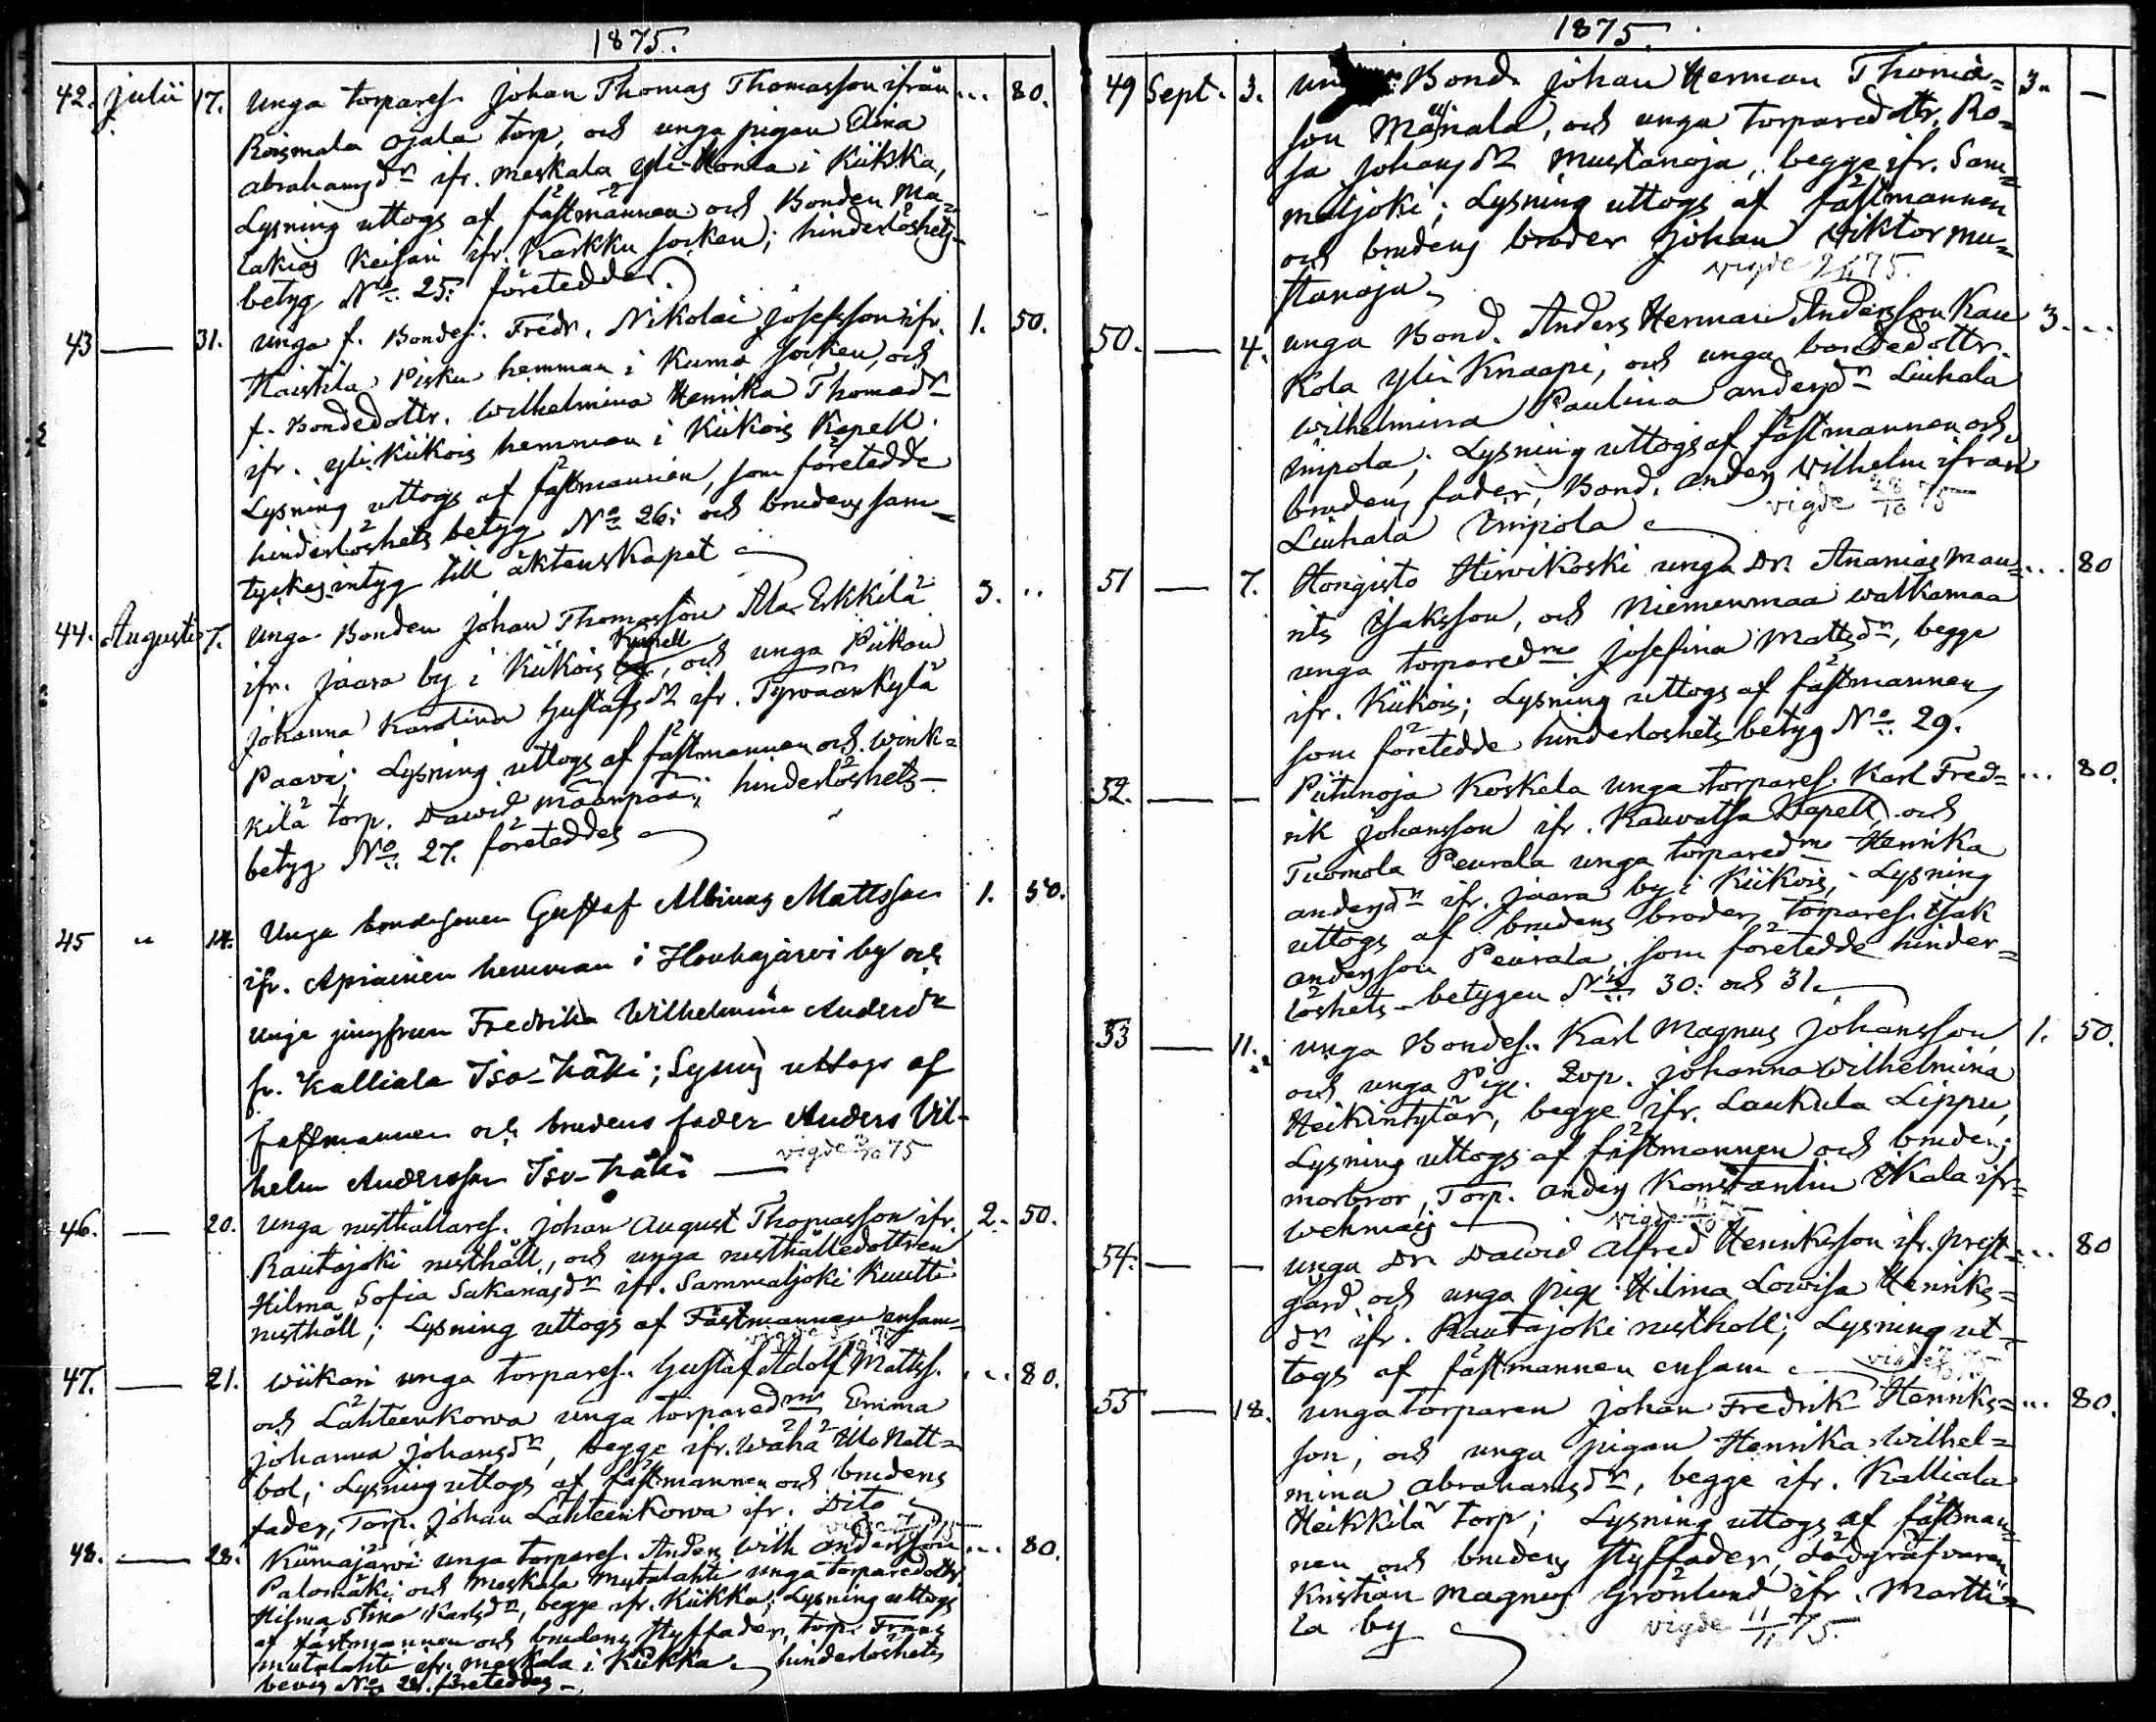 1875.
42. Julii 17. Unga torpares. Johan Thomas Thomasson ifrån ... 80.
Roismala Ojala torp, och unga pigan Elina
Abrahamsdr ifr. Meskala Yli-Honka i Kiikka,
Lysning uttogs af fästmannen och Bonden Ma-
lakias Keisari ifr. Karkku socken; hinderlöshets-
betyg No 25: företeddes
43 — 31. Unga f. Bondes. Fredr. Nikolai Josefsson ifr. 1. 50.
Haistila Pisku hemman i Kumo socken, och
f. Bondedottr. Wilhelmina Henrika Thomedr
ifr. Yli Kiikois hemman i Kiikois Kapell.
Lysning uttogs af fästmannen, som företedde
hinderlöshets betyg No 26: och brudens sam-
tyckes intyg till äktenskapet
44. Augusti 7. Unga Bonden Johan Thomasson Ala-Erkkilä 3. ..
ifr. Jaara by i Kiikois Kapell, och unga Piikan
Johanna Karolina Gustafsdr ifr. Tyrwäänkylä
Paavi; Lysning uttogs af fästmannen och Wink-
kilä torp. Dawid Mäenpää; hinderlöshets-
betyg No 27. företeddes
45 " 14. Unga bondesonen Gustaf Albinus Mattsson 1. 50.
ifr. Apiainen hemman i Houhajärvi by och
unga jungfrun Fredrika Wilhelmina Andersdr
fr. Kalliala Iso-Käki; Lysning uttogs af
fästmannen och brudens fader Anders Vil-
helm Andersson Iso-Käki — vigde 75
46. — 20. Unga rusthållares. Johan August Thomasson ifr. 2. 50.
Rautajoki rusthåll, och unga rusthålledottren
Hilma Sofia Sakariasdr ifr. Sammaljoki Kuutti
rusthåll; Lysning uttogs af Fästmannen ensam
47. — 21. Wiikari unga torpares. Gustaf Adolf Mattss. ... 80.
och Lähteenkorwa unga torparedm Emma
Johanna Johansdr, begge ifr. Wähä Ala Natt-
bol; Lysning uttogs af fästmannen och brudens
fader, Torp. Johan Lähteenkorwa ifr. Dito
48. — 28. Kiimajärwi unga torpares. Anders Wilh Andersson ... 80.
Palomäki och Meskala Mytalahti unga torparedottr.
Hilma Stina Karlsdr, begge ifr. Kiikka; Lysning uttogs
af fästmannen och brudens styffader, torp. Frans
Mutalahti ifr. Meskala i Kiikka. hinderlöshets
bevis No 28. företeddes —
1875.
49 Sept. 3. Bond. Johan Herman Thomas- 3. —
son Märiala, och unga torparedottr. Ro-
sa Johansdr Mustanoja, begge ifr. Sam-
maljoki; Lysning uttogs af fästmannen
och brudens broder Johan Wiktor Mu-
stanoja. vigde 75.
50. — 4. Unga Bond. Anders Herman Andersson Kau 3. ..
kola Yli Knaapi, och unga bondedottr.
Wilhelmina Paulina Andersdr Liuhala
Simpola; Lysning uttogs af fästmannen och
brudens fader, Bond. Anders Wilhelm ifrån
Liuhala Simpola vigde 28/10 75
51 — 7. Hongisto Hirwikoski unga Dr. Ananias Mau- ... 80
rits Isaksson, och Niemenmaa Walkamaa
unga torparedm Josefina Mattsdr, begge
ifr. Kiikois; Lysning uttogs af fästmannen,
som företedde hinderlöshets betyg No 29.
52. — — Piitinoja Koskela unga torpares. Karl Fred- ... 80.
rik Johansson ifr. Kauvatsa Kapell, och
Tuomola Peurala unga torparedm Henrika
Andersdr ifr. Jaara by i Kiikois, Lysning
uttogs af brudens broder, torpares. Isak
Andersson Peurala, som företedde hinder-
löshets-betygen No 30: och 31.
53 — 11. Unga Bondes. Karl Magnus Johansson 1. 50.
och unga Pig. Johanna Wilhelmina
Heikintytär, begge ifr. Laukula Lippu,
Lysning uttogs af fästmannen och brudens
morbror, Torp. Anders Konstantin Skala ifr-
Wehmais vigde
54. — — Unga Dr. Dawid Alfred Henriksson ifr. prest- ... 80
gård och unga pig. Hilma Lowisa Henriks-
dr ifr. Rautajoki rusthåll; Lysning ut-
togs af fästmannen ensam vigde 75
55 — 18. Unga torparen Johan Fredrik Henriks- ... 80.
son, och unga pigan Henrika Wilhel-
mina Abrahamsdr, begge ifr. Kalliala
Heikkilä torp; Lysning uttogs af fästman-
nen och brudens styffader, dödgräfvaren
Kristian Magnus Grönlund ifr. Martti-
la by vigde 11/11 75.